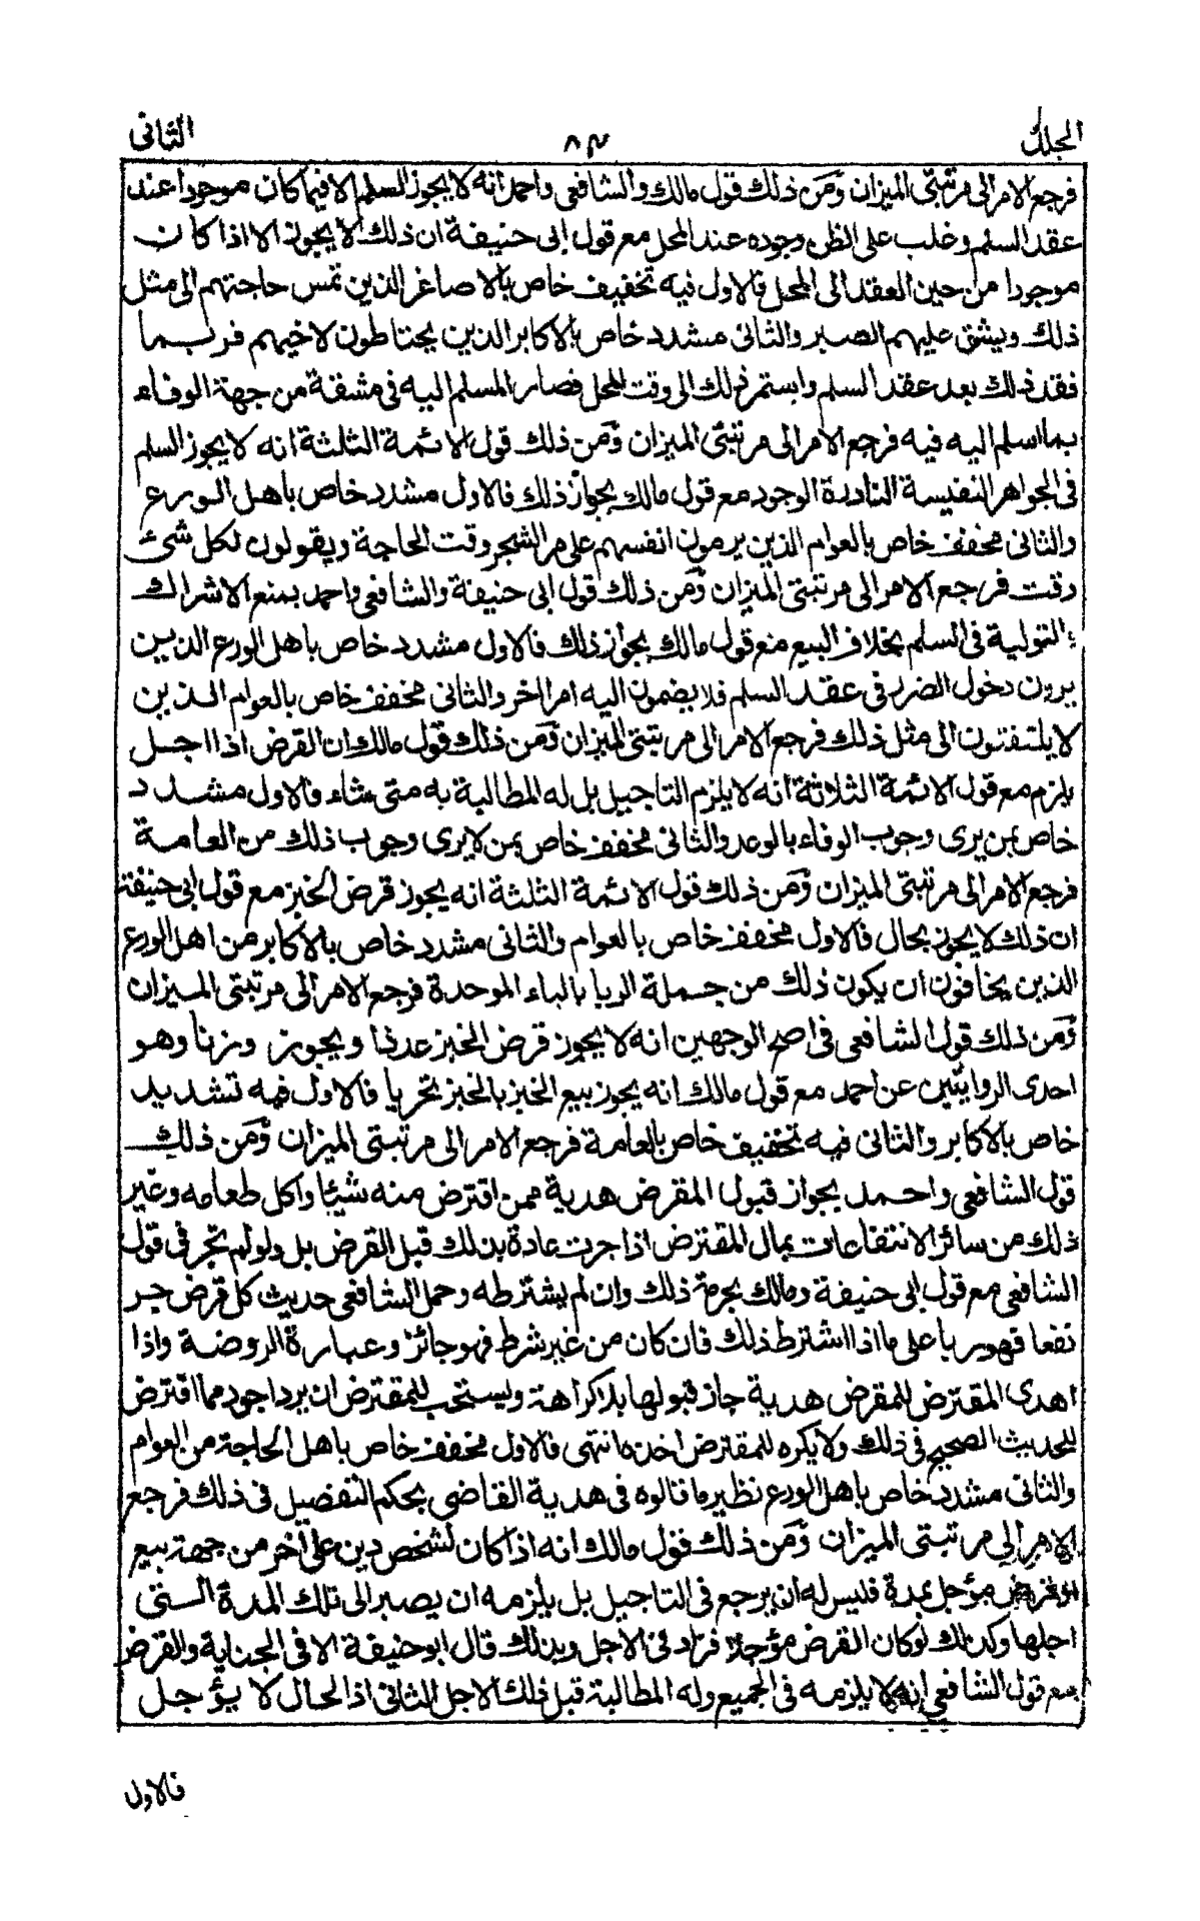 المجلد
٨٣
الثانى
فرجع الامر الى مرتبتى الميزان ومن ذلك قول مالك والشافعى واحمد انه لا يجوز السلم الا فيما كان موجودا عند
عقد السلم وغلب على الظن وجوده عند المحل مع قول ابى حنيفة ان ذلك لا يجوز الا اذا كان
موجودا من حين العقد الى المحل فالاول فيه تخفيف خاص بالاصاغر الذين تمس حاجتهم الى مثل
ذلك ويشق عليهم الصبر والثانى مشدد خاص بالاكابر الذين يحتاطون لاخيهم فربما
فقد ذلك بعد عقد السلم واستمر ذلك الى وقت المحل فصار المسلم اليه فى مشقة من جهة الوفاء
بما اسلم اليه فيه فرجع الامر الى مرتبتى الميزان ومن ذلك قول الائمة الثلثة انه لا يجوز السلم
فى الجواهر النفيسة النادرة الوجود مع قول مالك بجواز ذلك فالاول مشدد خاص باهل الورع
والثانى مخفف خاص بالعوام الذين يرمون انفسهم على مر الشجر وقت الحاجة ويقولون لكل شئ
وقت فرجع الامر الى مرتبتى الميزان ومن ذلك قول ابى حنيفة والشافعى واحمد بمنع الاشراك
والتولية فى السلم بخلاف البيع مع قول مالك بجواز ذلك فالاول مشدد خاص باهل الورع الذين
يرون دخول الضرر فى عقد السلم فلا يضمون اليه امرا اخر والثانى مخفف خاص بالعوام الذين
لا يلتفتون الى مثل ذلك فرجع الامر الى مرتبتى الميزان ومن ذلك قول مالك ان القرض اذا اجل
يلزم مع قول الائمة الثلاثة انه لا يلزم التاجيل بل له المطالبة به متى شاء فالاول مشدد
خاص بمن يرى وجوب الوفاء بالوعد والثانى مخفف خاص بمن لا يرى وجوب ذلك من العامة
فرجع الامر الى مرتبتى الميزان ومن ذلك قول الائمة الثلثة انه يجوز قرض الخبز مع قول ابى حنيفة
ان ذلك لا يجوز بحال فالاول مخفف خاص بالعوام والثانى مشدد خاص بالاكابر من اهل الورع
الذين يخافون ان يكون ذلك من جملة الربا بالباء الموحدة فرجع الامر الى مرتبتى الميزان
ومن ذلك قول الشافعى فى اصح الوجهين انه لا يجوز قرض الخبز عددا ويجوز وزنا وهو
احدى الروايتين عن احمد مع قول مالك انه يجوز بيع الخبز بالخبز تحريا فالاول فيه تشديد
خاص بالاكابر والثانى فيه تخفيف خاص بالعامة فرجع الامر الى مرتبتى الميزان ومن ذلك
قول الشافعى واحمد بجواز قبول المقرض هدية ممن اقترض منه شيئا واكل طعامه وغير
ذلك من سائر الانتفاعات بمال المقترض اذا جرت عادة بذلك قبل القرض بل ولو لم تجر فى قول
الشافعى مع قول ابى حنيفة ومالك بحرمة ذلك وان لم يشترطه وحمل الشافعى حديث كل قرض جر
نفعا فهو ربا على ما اذا اشترط ذلك فان كان من غير شرط فهو جائز وعبارة الروضة واذا
اهدى المقترض للمقرض هدية جاز قبولها بلا كراهة ويستحب للمقترض ان يرد اجود مما اقترض
للحديث الصحيح فى ذلك ولا يكره للمقترض اخذه انتهى فالاول مخفف خاص باهل الحاجة من العوام
والثانى مشدد خاص باهل الورع نظير ما قالوه فى هدية القاضى بحكم التفصيل فى ذلك فرجع
الامر الى مرتبتى الميزان ومن ذلك قول مالك انه اذا كان لشخص دين على آخر من جهة بيع
او قرض مؤجل بمدة فليس له ان يرجع فى التاجيل بل يلزمه ان يصبر الى تلك المدة التى
اجلها وكذلك لو كان القرض مؤجلا فزاد فى الاجل وبذلك قال ابو حنيفة الا فى الجناية والقرض
مع قول الشافعى انه لا يلزمه فى الجميع وله المطالبة قبل ذلك الاجل الثانى اذ الحال لا يؤجل
فالاول